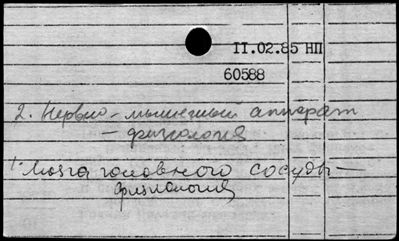 II.02.85 НП
60588
2. Нервно-мышечный аппарат
– физиология
1. Мозга головного сосуды –
физиология